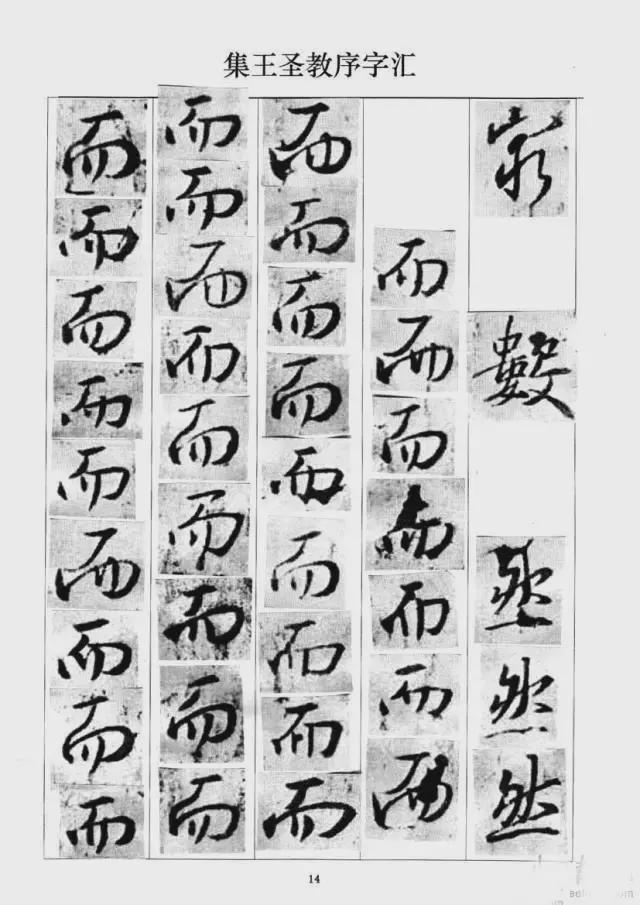 集王圣教序字汇
數然然然
而而而而而而而
而而而而而而而而而
而而而而而而而而而
而而而而而而而而而
14